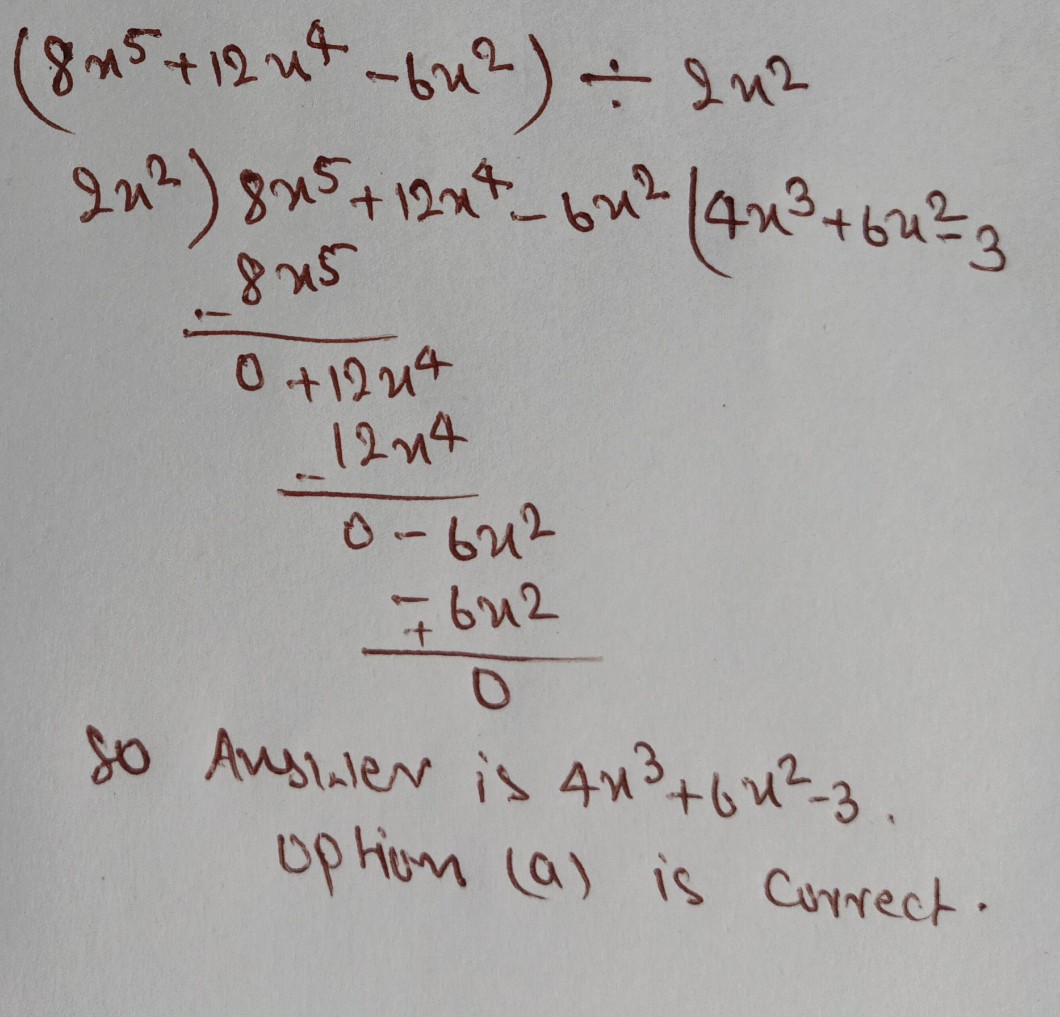 (8x⁵+12x⁴-6x²) ÷ 2x²
2x²) 8x⁵+12x⁴-6x² (4x³+6x²-3
- 8x⁵
0 +12x⁴
- 12x⁴
0 - 6x²
- 6x²
+
0
So Answer is 4x³+6x²-3.
option (a) is Correct.